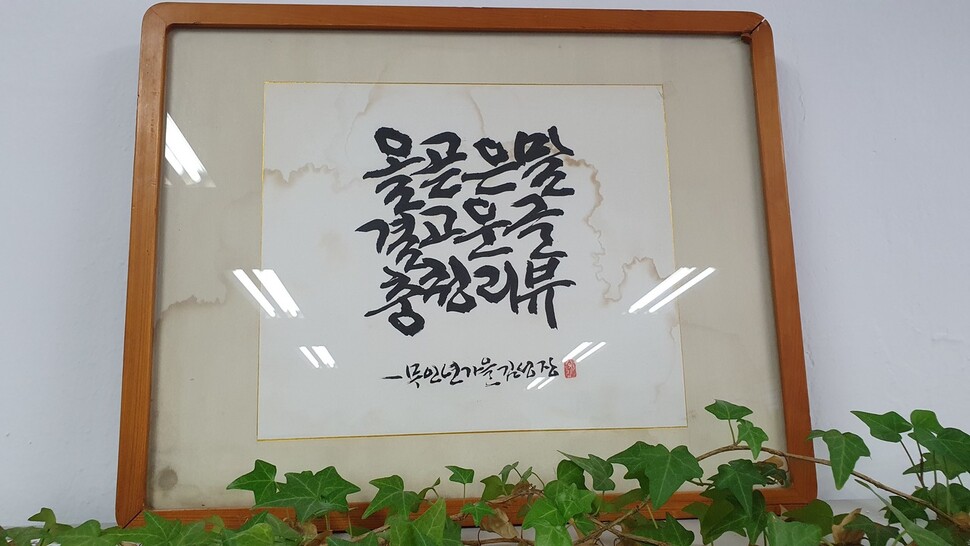 올곧은말
결고운글
충청리뷰
무인년가을김성장